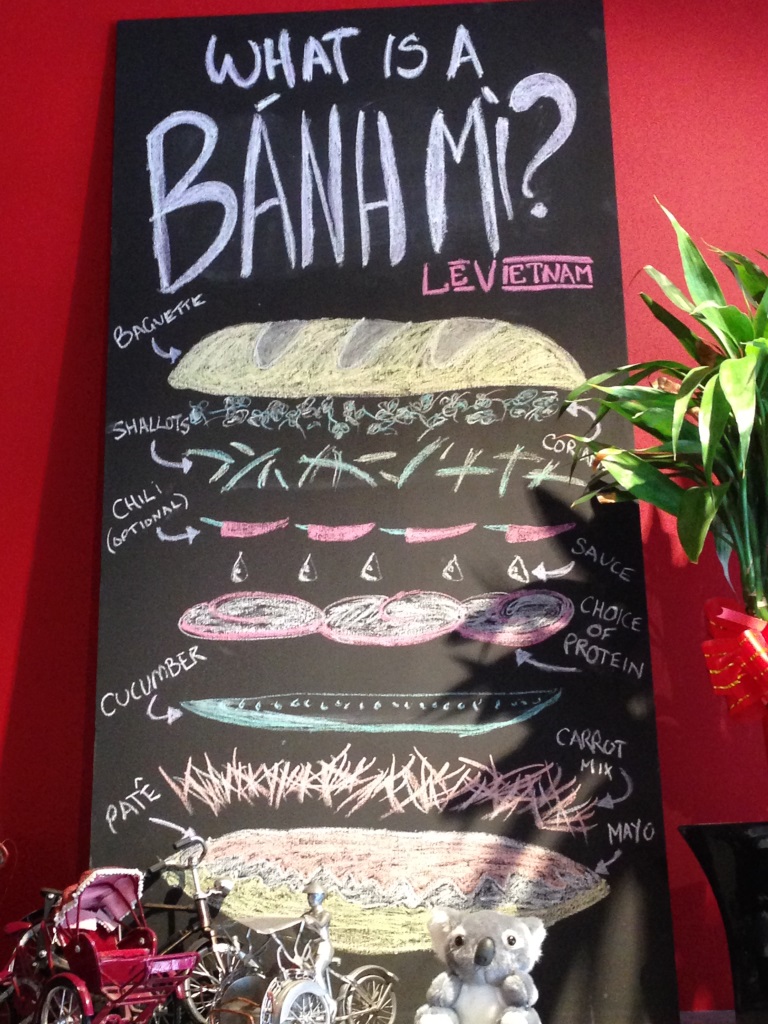 WHAT IS A
BÁNH MÌ?
LÊVIETNAM
BAGUETTE
SHALLOTS
CHILI
(OPTIONAL)
SAUCE
CHOICE
OF
PROTEIN
CUCUMBER
CARROT
MIX
PATÊ
MAYO